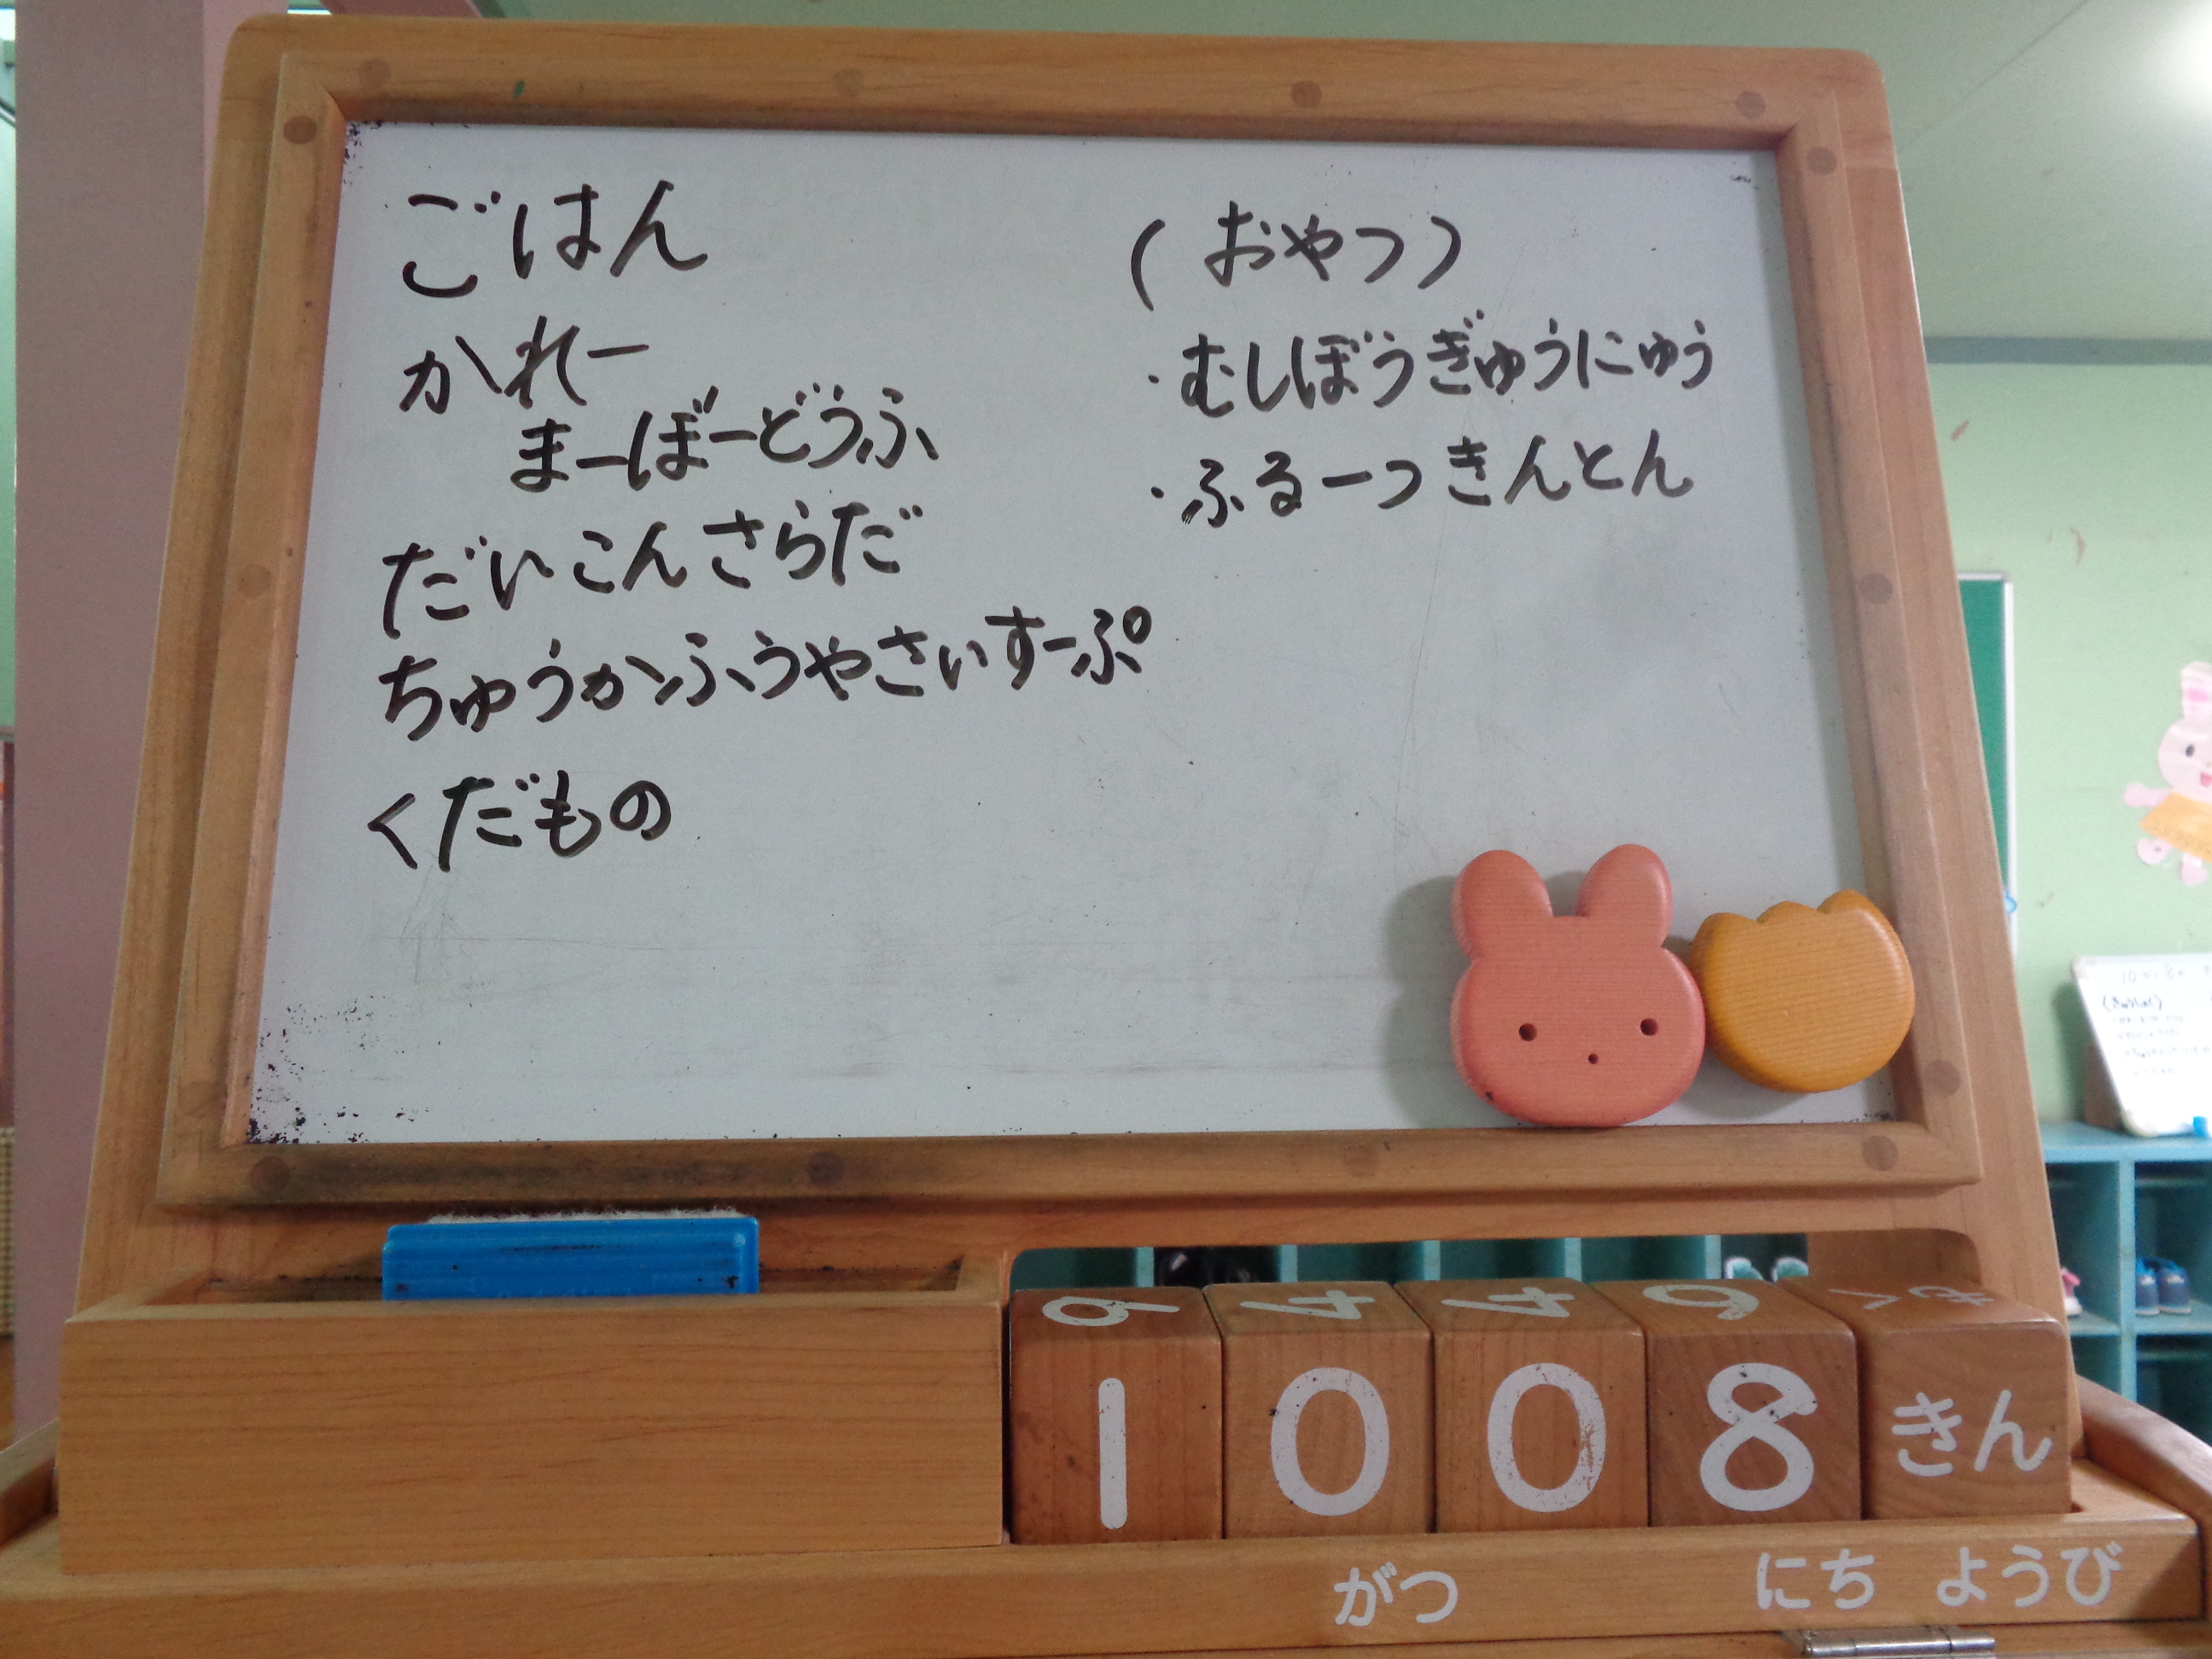 ごはん
かれー
まーぼーどうふ
だいこんさらだ
ちゅうかふうやさいすーぷ
くだもの
(おやつ)
・むしぼうぎゅうにゅう
・ふるーつきんとん
9 4 4 9
1 0 0 8 きん
がつ にち ようび